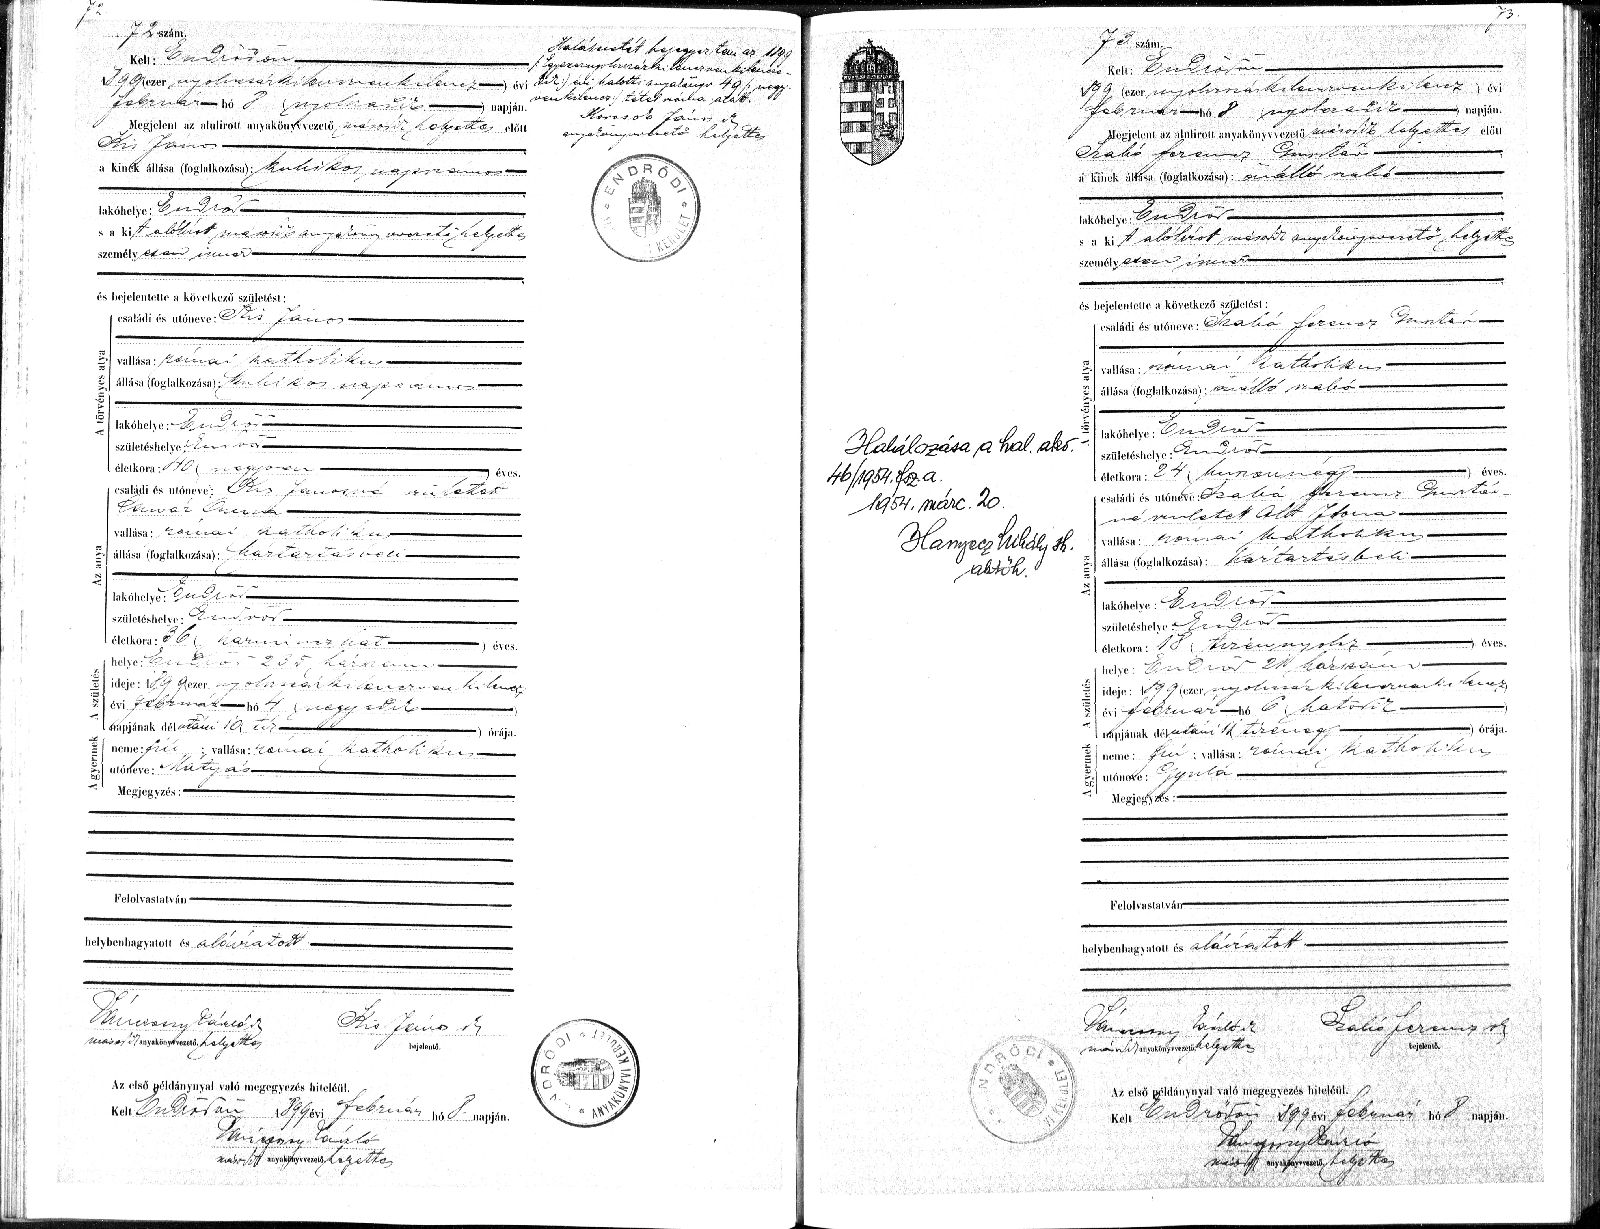 72
72 szám.
Kelt: Endrődön
1899 (ezer nyolczszázkilenczvenkilencz) évi
február hó 8 (nyolczadik) napján.
Megjelent az alulirott anyakönyvvezető második helyettes előtt
Kis János
a kinek állása (foglalkozása): kubikos napszamos
lakóhelye: Endrőd
s a kit alólirt második anyakönyvvezető helyettes
személyesen ismer
és bejelentette a következő születést:
A törvényes atya
családi és utóneve: Kis János
vallása: római katholikus
állása (foglalkozása): kubikos napszamos
lakóhelye: Endrőd
születéshelye: Endrőd
életkora: 40 (negyven) éves.
Az anya
családi és utóneve: Kis Jánosné született
Anna
vallása: római katholikus
állása (foglalkozása): háztartásbeli
lakóhelye: Endrőd
születéshelye: Endrőd
életkora: 36 (harminczhat) éves.
A születés
helye: Endrőd 235 házszám
ideje: 1899 (ezer nyolczszázkilenczvenkilencz
évi február hó 4 (negyedik)
napjának délutáni 10 tíz órája.
A gyermek
neme: fiú; vallása: római katholikus
utóneve: Mátyás
Megjegyzés:
Felolvastatván
helybenhagyatott és aláiratott
László
második anyakönyvvezető helyettes
Kis János
bejelentő.
Az első példánynyal való megegyezés hiteléül.
Kelt Endrődön 1899 évi február hó 8. napján.
László
második anyakönyvvezető helyettes
Halálesetét bejegyeztem az 1899
(Egyezernyolczszázkilenczvenkilencz-
dik) évi halotti anyakönyv 49 (negy-
venkilencz) tétel száma alatt.
János
anyakönyvvezető helyettes
ENDRŐDI
KERÜLET
ENDRŐDI ANYAKÖNYVI KERÜLET
73.
73 szám.
Kelt: Endrődön
1899 (ezer nyolczszázkilenczvenkilencz) évi
február hó 8 (nyolczadik) napján.
Megjelent az alulirott anyakönyvvezető második helyettes előtt
Szabó Ferencz Gusztáv
a kinek állása (foglalkozása): önálló szabó
lakóhelye: Endrőd
s a kit alólirot második anyakönyvvezető helyettes
személyesen ismer
és bejelentette a következő születést:
A törvényes atya
családi és utóneve: Szabó Ferencz Gusztáv
vallása: római katholikus
állása (foglalkozása): önálló szabó
lakóhelye: Endrőd
születéshelye: Endrőd
életkora: 24 (huszonnégy) éves.
Az anya
családi és utóneve: Szabó Ferencz Gusztáv-
né született Ilona
vallása: római katholikus
állása (foglalkozása): háztartásbeli
lakóhelye: Endrőd
születéshelye: Endrőd
életkora: 18 (tizennyolcz) éves.
A születés
helye: Endrőd házszám
ideje: 1899 (ezer nyolczszázkilenczvenkilencz
évi február hó 6 (hatodik)
napjának délutáni órája.
A gyermek
neme: fiú; vallása: római katholikus
utóneve: Gyula
Megjegyzés:
Felolvastatván
helybenhagyatott és aláiratott
László
második anyakönyvvezető helyettes
Szabó Ferencz
bejelentő.
Az első példánynyal való megegyezés hiteléül.
Kelt Endrődön 1899 évi február hó 8 napján.
László
második anyakönyvvezető helyettes
Halálozása a hal. akv.
46/1954. fsz a.
1954. márc. 20.
Hanyecz Mihály sk.